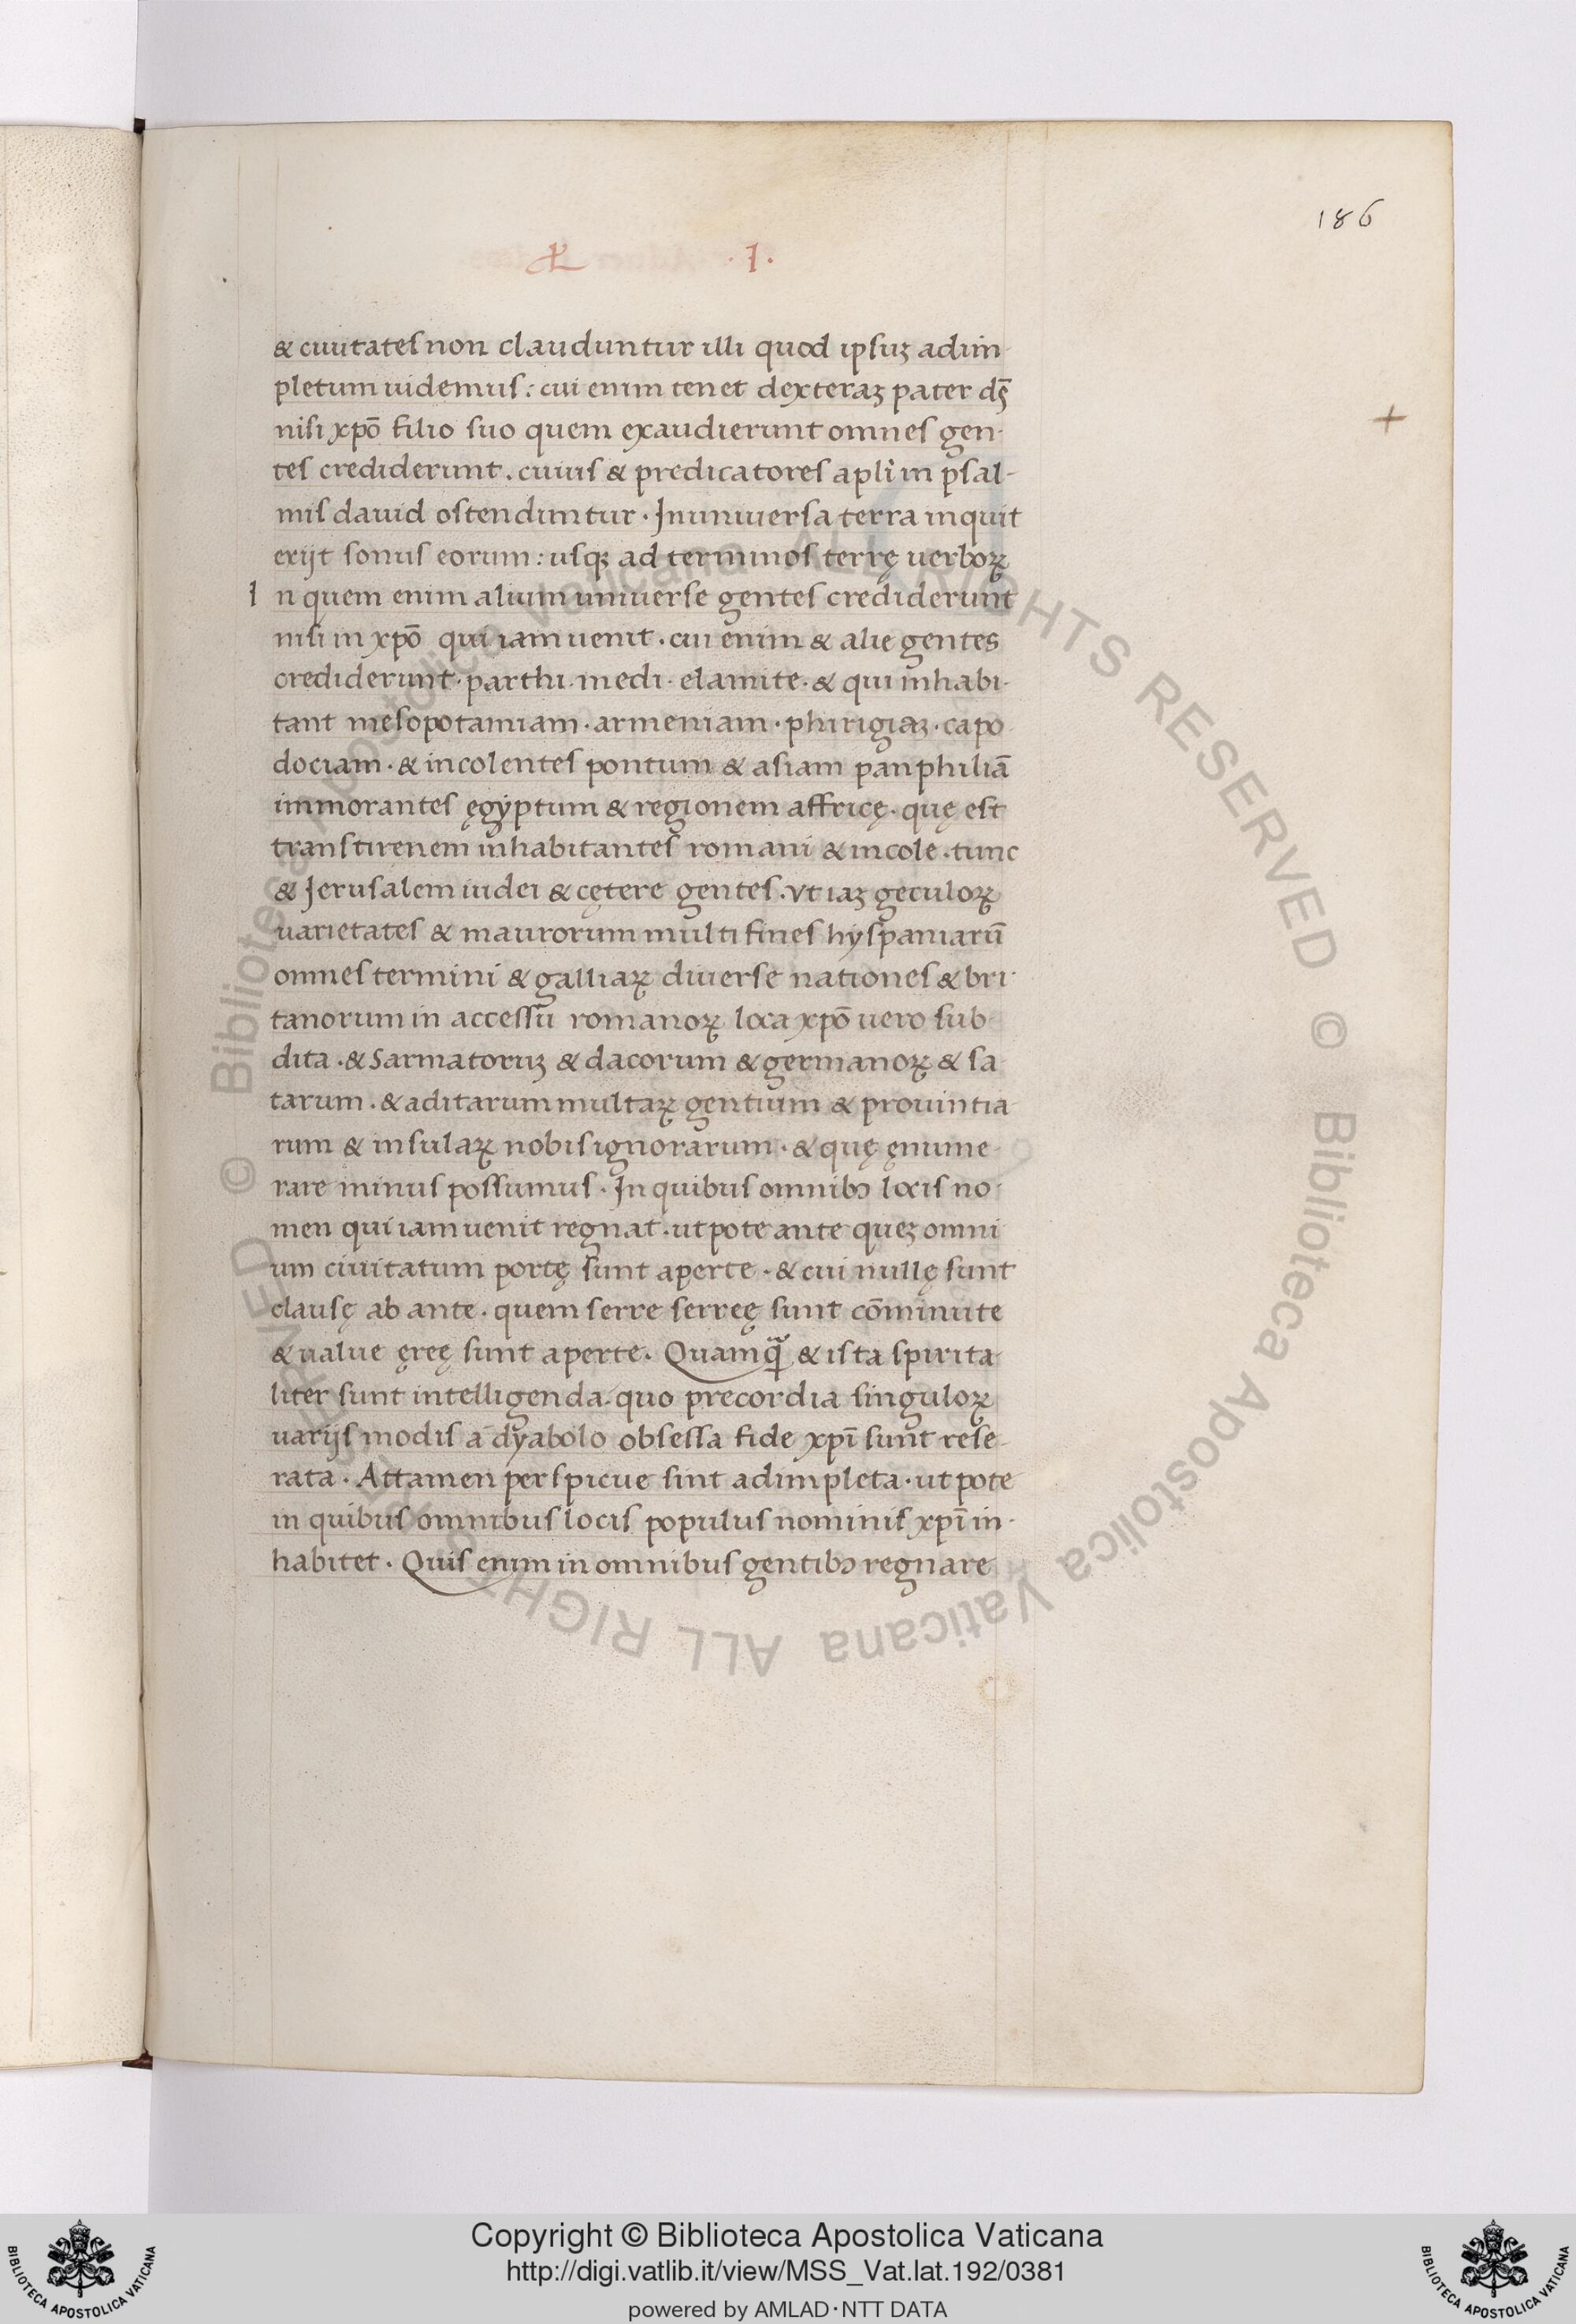 186
L · I ·
& ciuitates non clauduntur illi quod ipsuꝫ adim-
pletum uidemus : cui enim tenet dexteraꝫ pater ds̄
nisi xpō filio suo quem exaudierunt omnes gen-
tes crediderunt . cuius & predicatores apli in psal-
mis dauid ostenduntur · In uniuersa terra inquit
exijt sonus eorum : usqꝫ ad terminos terrę uerboꝝ
I n quem enim alium uniuerse gentes crediderunt
nisi in xpō qui iam uenit . cui enim & alie gentes
crediderunt · parthi · medi · elamite · & qui inhabi-
tant mesopotamiam · armeniam · phirigiaꝫ · capo
dociam · & incolentes pontum & asiam panphiliā
immorantes ęgyptum & regionem affricę · quę est
transtirenem inhabitantes romani & incole · tunc
& Jerusalem iudei & cętere gentes . vt iaꝫ getuloꝝ
uarietates & maurorum multi fines hyspaniarū
omnes termini & galliaꝝ diuerse nationes & bri-
tanorum in accessu romanoꝝ loca xpō uero sub-
dita · & Sarmatoruꝫ & dacorum & germanoꝝ & sa-
tarum . & aditarum multaꝝ gentium & prouintia-
rum & insulaꝝ nobis ignorarum · & quę ęnume-
rare minus possumus · In quibus omnibꝰ locis no-
men qui iam uenit regnat · utpote ante queꝫ omni
um ciuitatum portę sunt aperte · & cui nullę sunt
clausę ab ante · quem serre serreę sunt cōminute
& ualue ęreę sunt aperte · Quamq̃ & ista spirita-
liter sunt intelligenda · quo precordia singuloꝝ
uarijs modis a dyabolo obsessa fide xpī sunt rese-
rata · Attamen perspicue sint adimpleta · utpote
in quibus omnibus locis populus nominis xpī in-
habitet · Quis enim in omnibus gentibꝰ regnare
© Biblioteca Apostolica Vaticana ALL RIGHTS RESERVED © Biblioteca Apostolica Vaticana ALL RIGHTS RESERVED
Copyright © Biblioteca Apostolica Vaticana
http://digi.vatlib.it/view/MSS_Vat.lat.192/0381
powered by AMLAD·NTT DATA
BIBLIOTECA APOSTOLICA VATICANA
BIBLIOTECA APOSTOLICA VATICANA